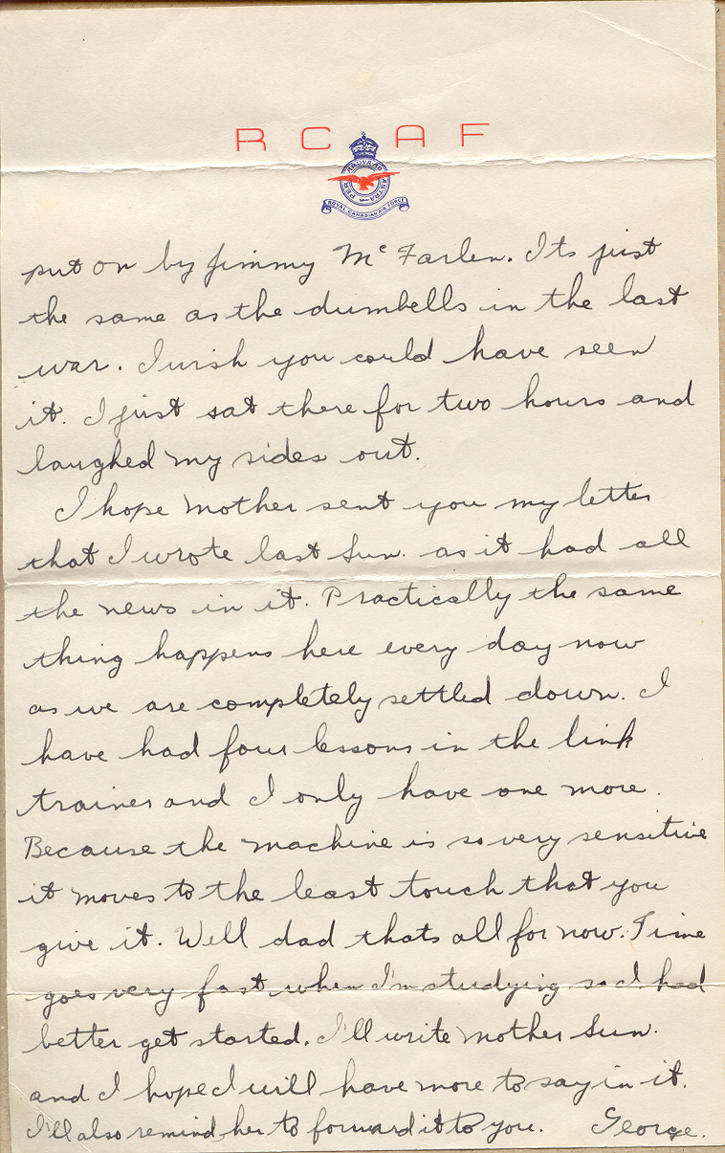 R C A F
PER ARDUA AD ASTRA
ROYAL CANADIAN AIR FORCE
put on by Jimmy Mc Farlen. Its just
the same as the dumbells in the last
war. I wish you could have seen
it. I just sat there for two hours and
laughed my sides out.
I hope mother sent you my letter
that I wrote last Sun. as it had all
the news in it. Practically the same
thing happens here every day now
as we are completely settled down. I
have had four lessons in the link
trainer and I only have one more.
Because the machine is so very sensitive
it moves to the least touch that you
give it. Well dad thats all for now. Time
goes very fast when I'm studying so I had
better get started. I'll write mother Sun.
and I hope I will have more to say in it.
I'll also remind her to forward it to you. George.